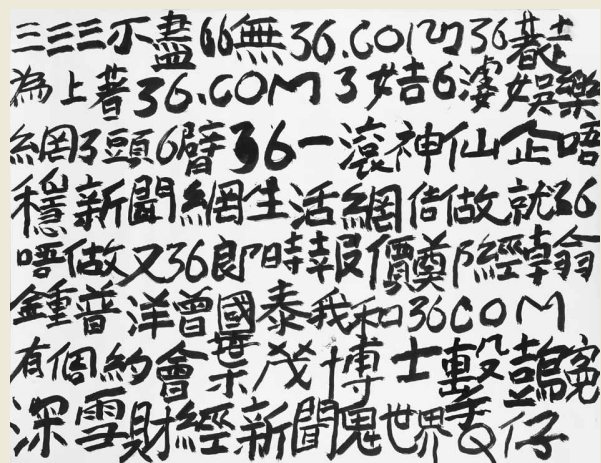 三三三不盡66無36.COM36裁
為上著36.COM3姑6婆娛樂
網3頭6臂36一滾神仙企唔
穩新聞網生活網佶做就36
唔做又36郎時報價奠阝經翰翁
鍾普洋曾國泰我和36COM
有個約會葉茂博士擊鼓鳴冤
深雪財經新聞鬼世界香仔